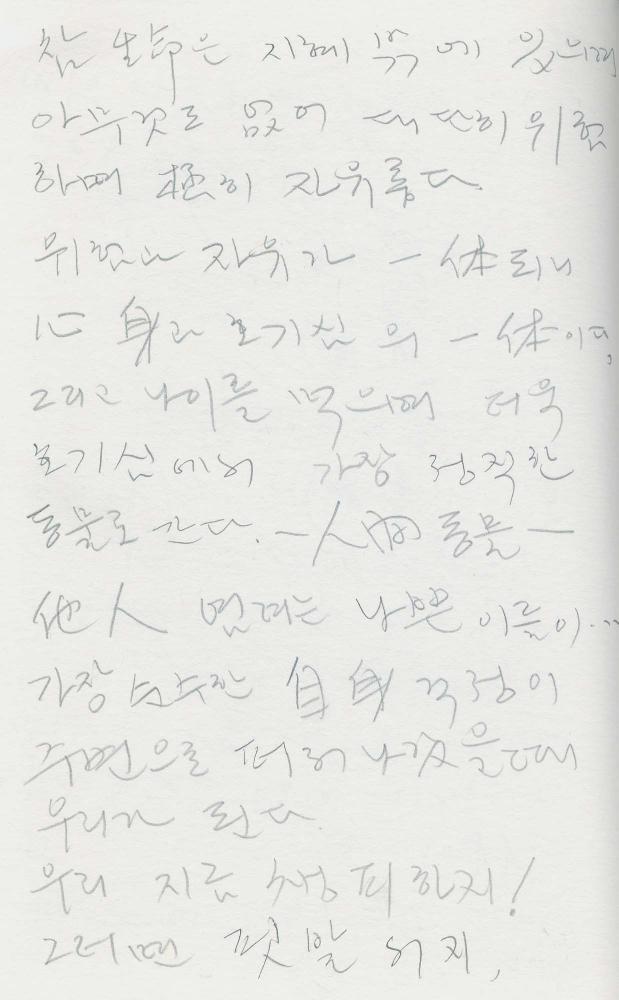 참 生命은 지혜 밖에 있으며
아무것도 없어 대단히 위험
하며 極히 자유롭다.
위험과 자유가 一体되니
心身과 호기심의 一体이다,
그리고 나이를 먹으며 더욱
호기심에서 가장 정직한
동물로 간다. —人間동물—
他人 염려는 나쁜 이름이...
가장 순수한 自身 걱정이
주변으로 퍼져 나갔을때
우리가 된다.
우리 지금 창피하지!
그러면 핏말